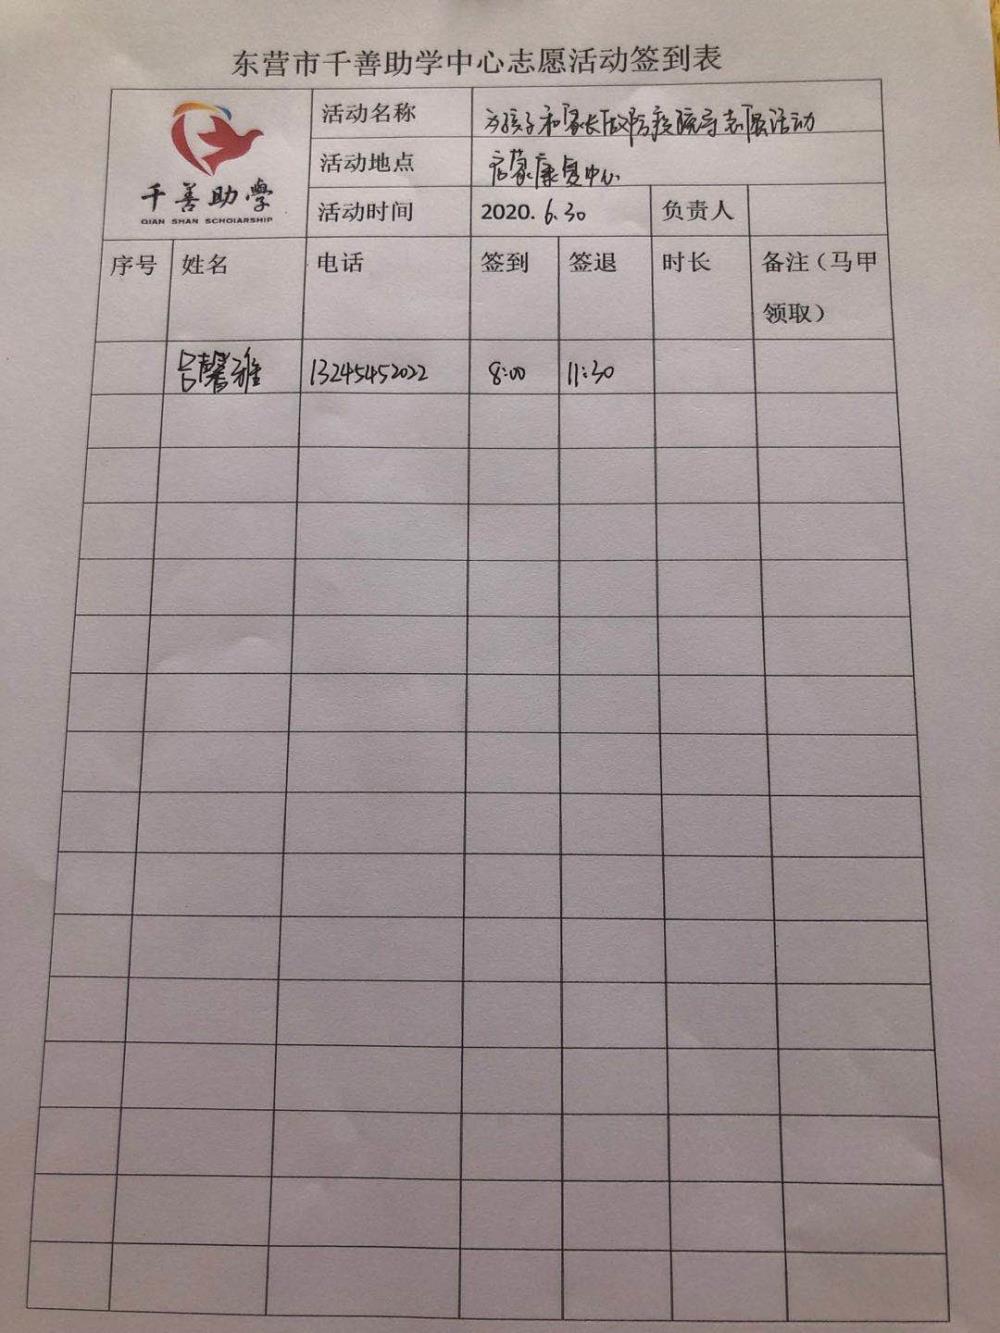 东营市千善助学中心志愿活动签到表
千善助学
QIAN SHAN SCHOLARSHIP
活动名称 为孩子和家长做防疫疏导志愿活动
活动地点 启蒙康复中心
活动时间 2020.6.30 负责人
序号 姓名 电话 签到 签退 时长 备注（马甲
领取）
吕馨雅 13245452022 8:00 11:30